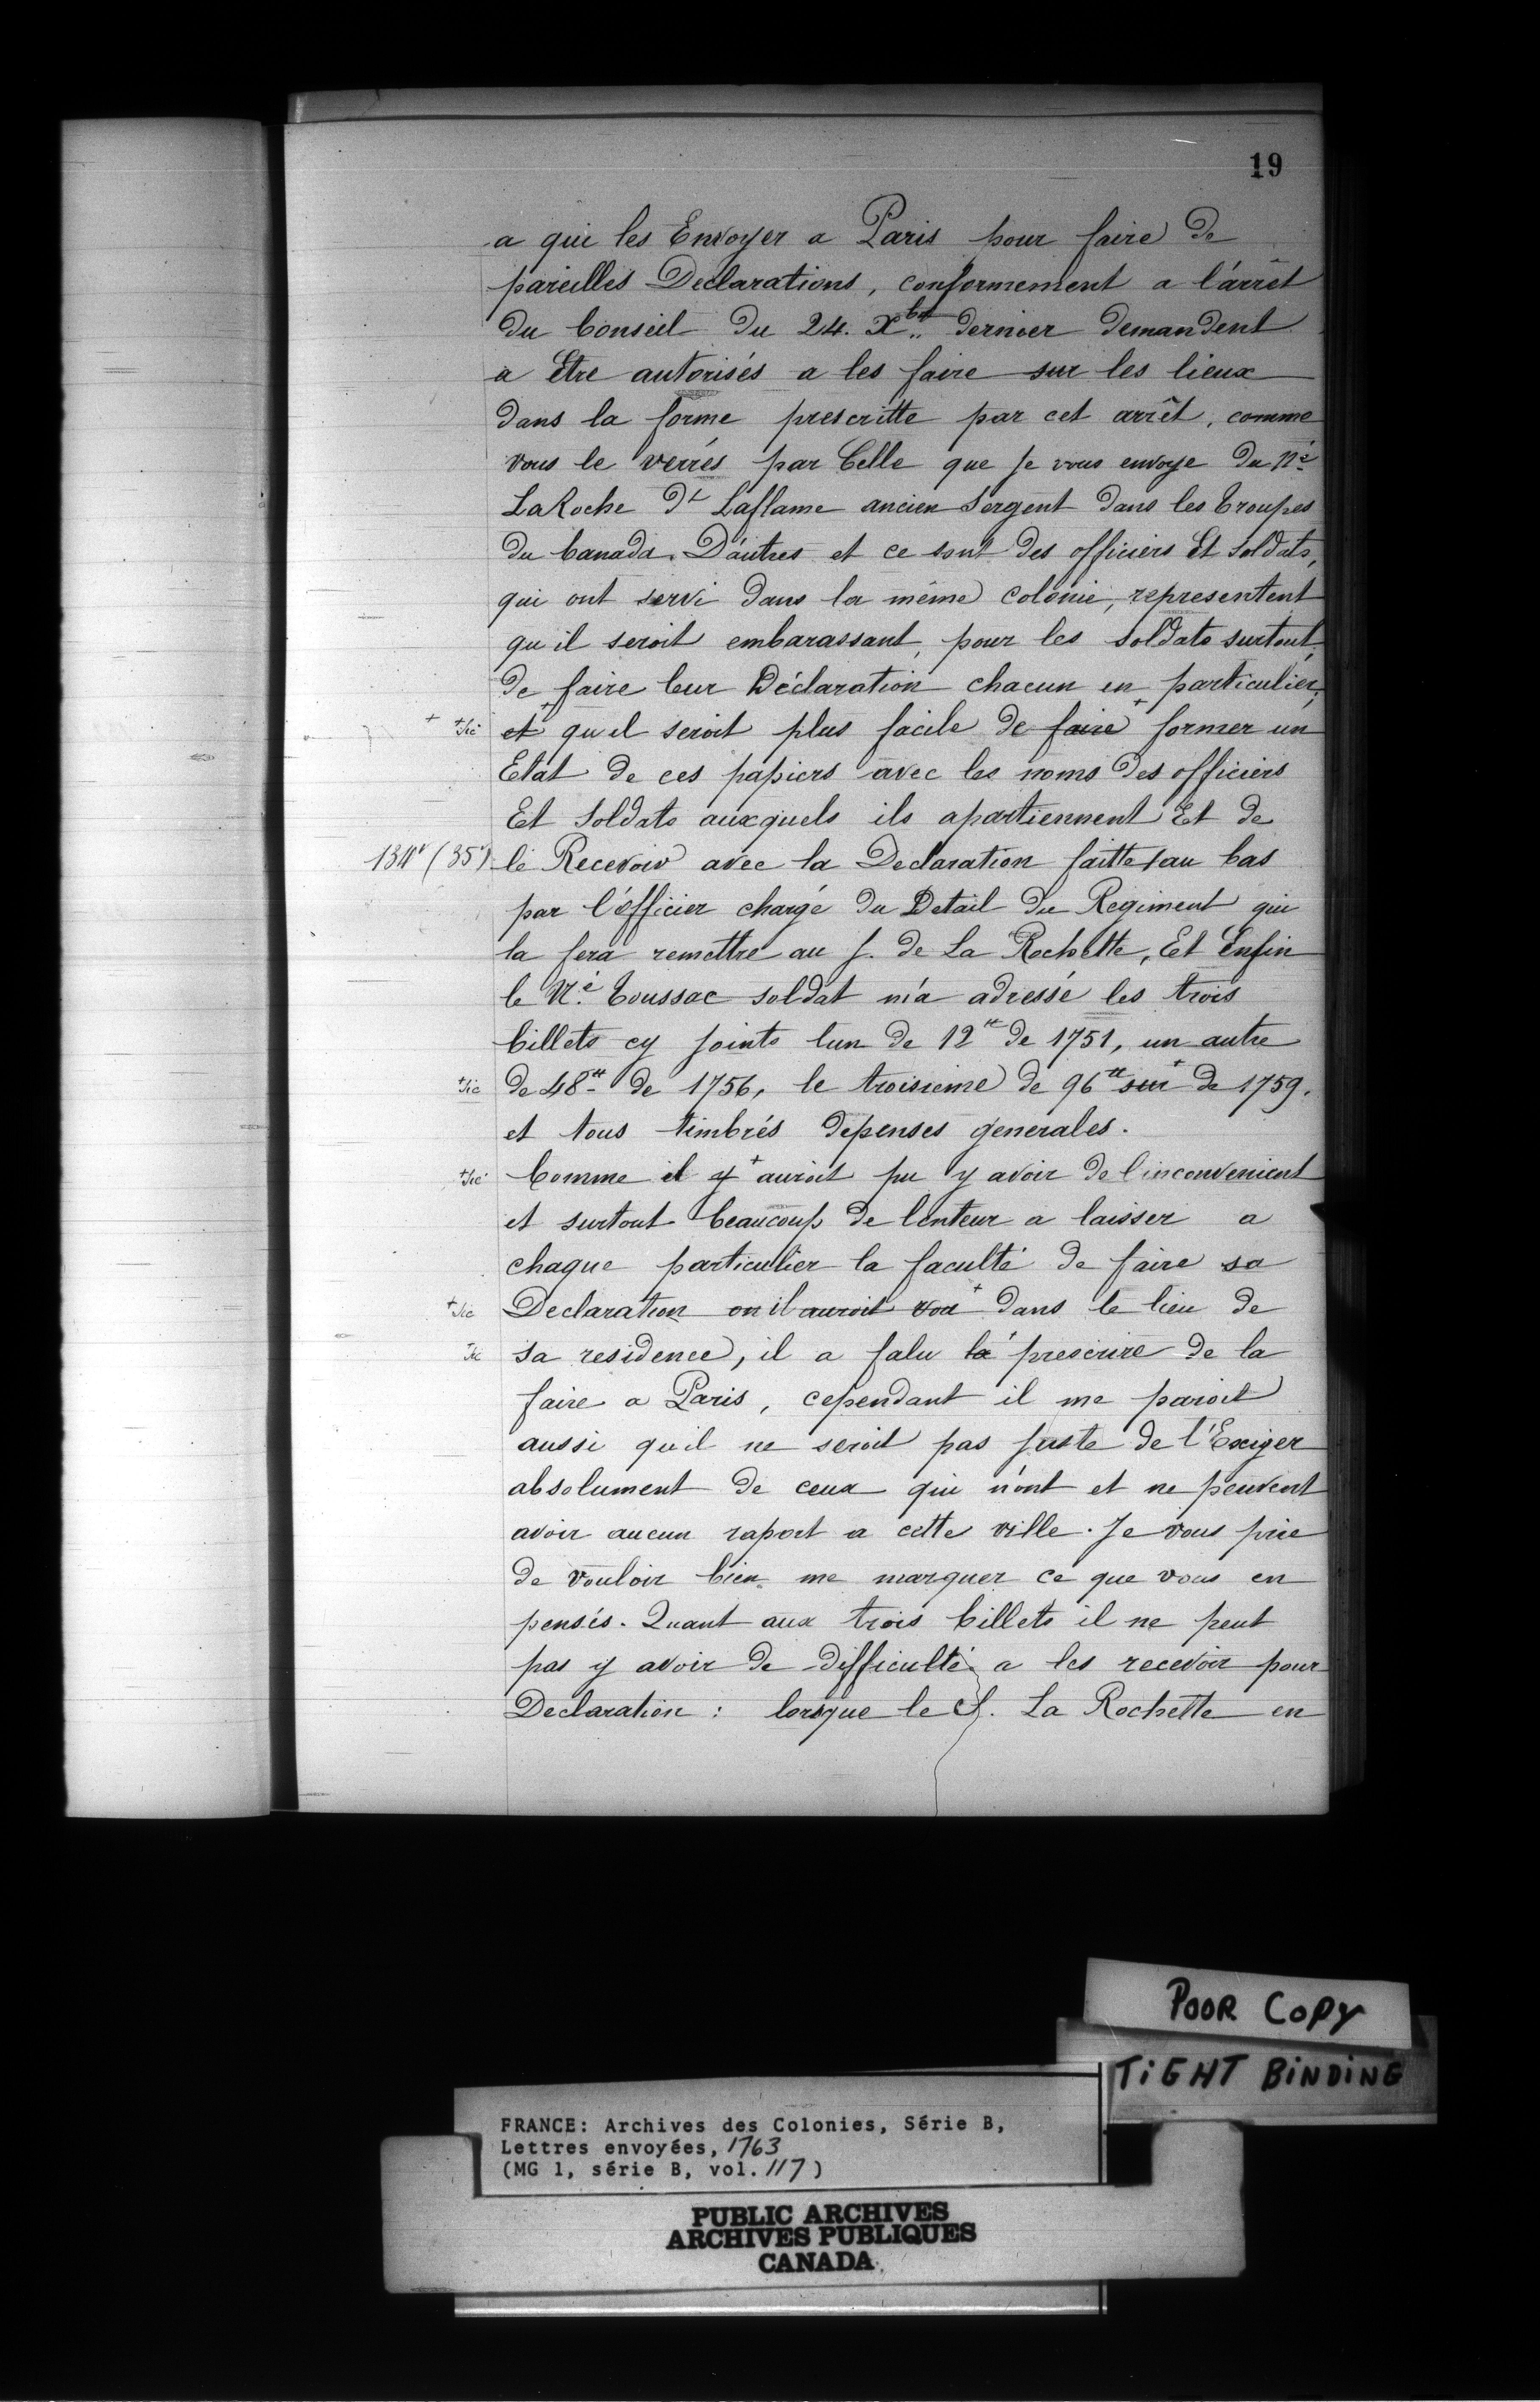 19
a qui les Envoyer a Paris pour faire de
pareilles Declarations, conformement a l'arrêt
du Conseil du 24. Xbre dernier demandent
a Etre autorisés a les faire sur les lieux
dans la forme prescritte par cet arrêt, comme
vous le verrés par Celle que Je vous envoye du Né
LaRoche dt Laflame ancien Sergent dans les troupes
du Canada. D'autres et ce sont des officiers Et soldats,
qui ont servi dans la même colonie, representent
qu'il seroit embarassant, pour les soldats surtout,
de faire leur Déclaration chacun en particulier;
+ +sic et+ qu'el seroit plus facile de faire+ former un
Etat de ces papiers avec les noms des officiers
Et Soldats auxquels ils apartiennent Et de
134v (35v) le Recevoir avec la Declaration faitte / au bas
par l'officier chargé du Detail du Regiment qui
la fera remettre au S. de La Rochette, Et Enfin
le Né Toussac soldat m'a adressé les trois
billets cy joints l'un de 12tt de 1751, un autre
+sic de 48tt de 1756, le troisieme de 96tt sur+ de 1759.
et tous timbrés depenses generales.
+sic Comme il y+ auroit pu y avoir de l'inconvenient
et surtout beaucoup de lenteur a laisser a
chaque particulier la faculté de faire sa
+sic Declaration on il auroit vou+ dans le lieu de
sic sa residence, il a falu la prescrire de la
faire a Paris, cependant il me paroit
aussi qu'il ne seroit pas juste de l'Exiger
absolument de ceux qui n'ont et ne peuvent
avoir aucun raport a cette ville. Je vous prie
de vouloir bien me marquer ce que vous en
pensés. Quant aux trois billets il ne peut
pas y avoir de difficulté a les recevoir pour
Declaration : lorsque le S. La Rochette en
POOR COPY
TIGHT BINDING
FRANCE: Archives des Colonies, Série B,
Lettres envoyées, 1763
(MG 1, série B, vol. 117)
PUBLIC ARCHIVES
ARCHIVES PUBLIQUES
CANADA